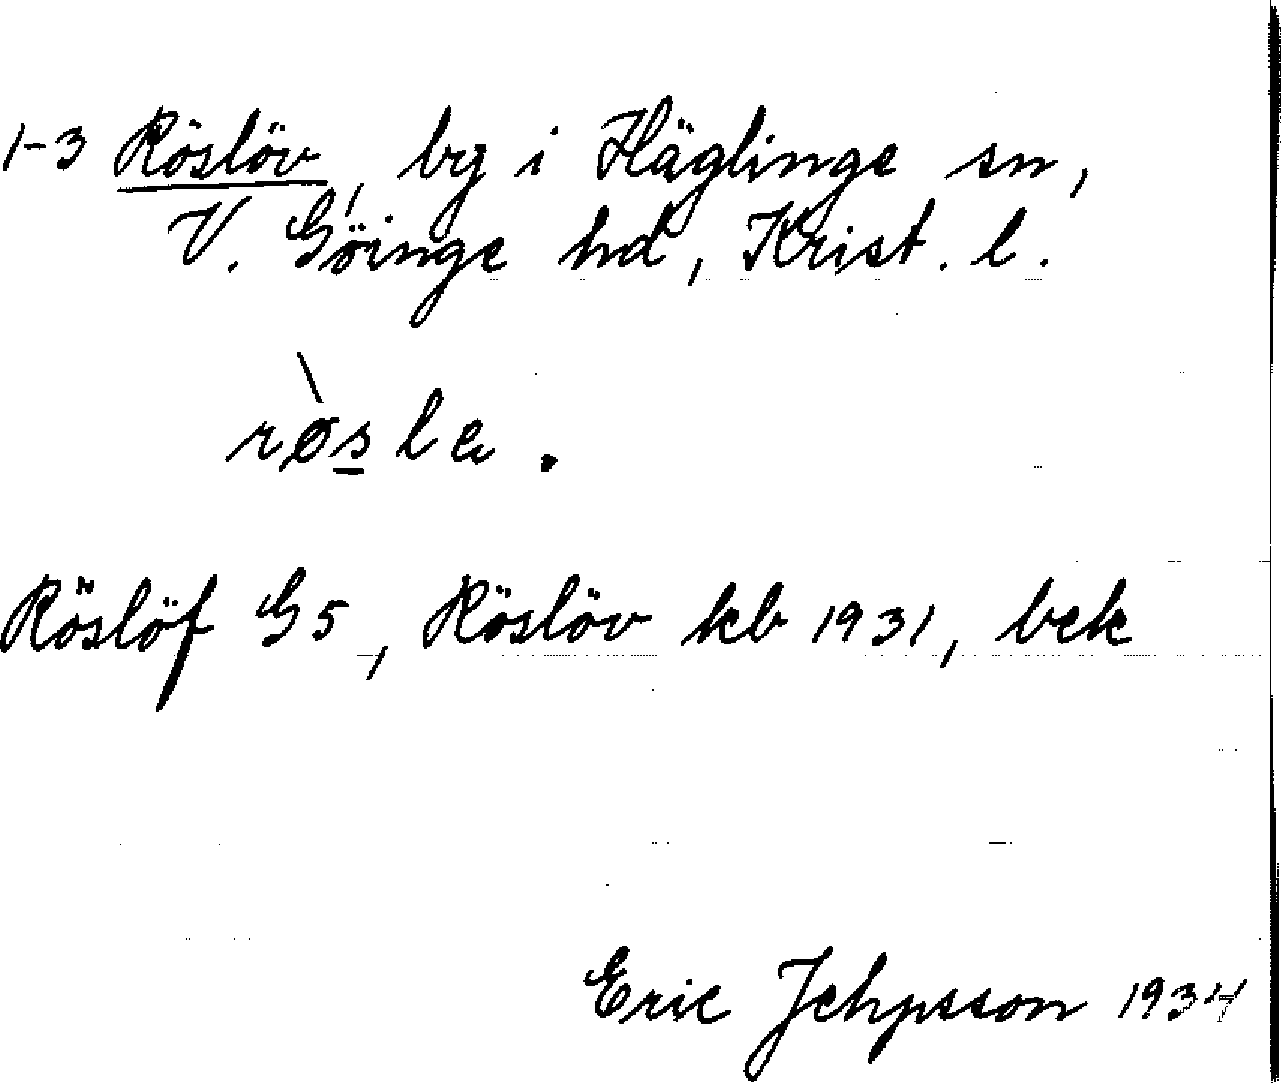 1-3 Röslöv, by i Häglinge sn,
V. Göinge hd, Krist. l.
rø̀sla.
Röslöf G5, Röslöv kb 1931, bek
Eric Jehpsson 1934